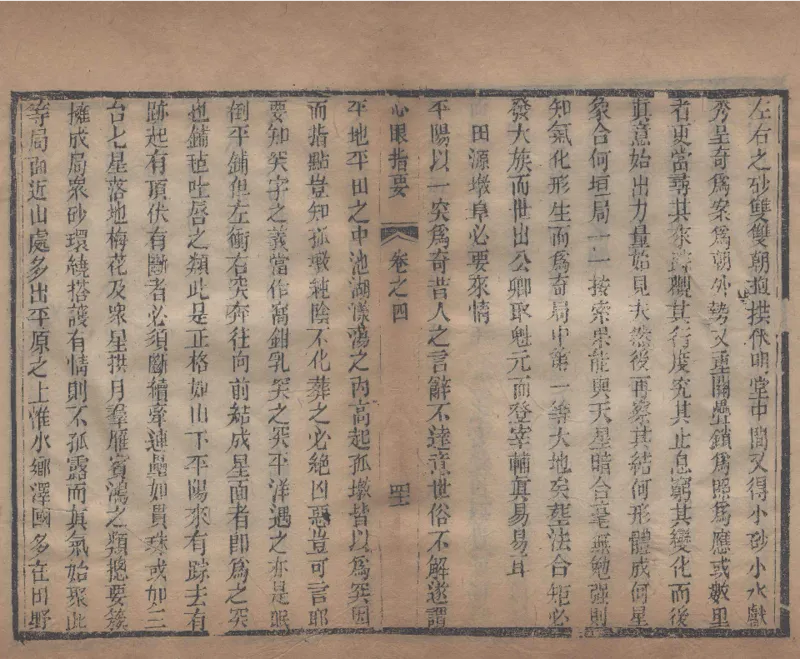 左右之砂雙雙朝抱拱伏明堂中間又得小砂小水獻
秀呈奇爲案爲朝外勢又重關疊鎖爲照爲應或數里
者更當尋其來蹤觀其行度究其止息窮其變化而後
眞意始出力量始見夫然後再察其結何形體成何星
象合何垣局一一按索果能與天星暗合毫無勉強則
知氣化形生而爲奇局中第一等大地矣塟法合矩必
發大族而世出公卿取魁元而登宰輔眞易易耳
田源墩阜必要來情
平陽以一突爲奇昔人之言辭不達意世俗不解遂謂
心眼指要 卷之四
平地平田之中池湖漾蕩之內高起孤墩皆以爲突因
而指點豈知孤墩純陰不化葬之必絕凶惡豈可言耶
要知突字之義當作窩鉗乳突之突平洋遇之亦是眠
倒平鋪但左衝右突奔往向前結成星面者即爲之突
也鋪毡吐唇之類此是正格如山下平陽來有踪去有
跡起有頂伏有斷者必須斷續牽連壘如貫珠或如三
台七星落地梅花及眾星拱月羣雁賓鴻之類摠要簇
擁成局眾砂環繞搭護有情則不孤露而眞氣始聚此
等局面近山處多出平原之上惟水鄉澤國多在田野